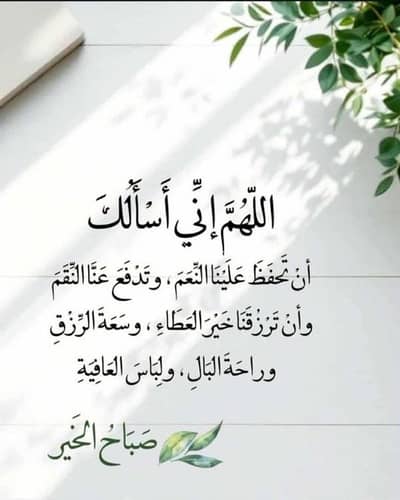 اللّهُمَّ إنِّي أَسْأَلُكَ
أنْ تَحفَظَ عَلَيْنَا النِّعَمَ، وتَدْفَعَ عَنَّا النِّقَمَ
وأنْ تَرْزُقَنَا خَيْرَ العَطَاءِ، وسَعَةَ الرِّزْقِ
وراحَةَ البَالِ، ولِبَاسَ العَافِيَةِ
صَبَاحُ الخَير